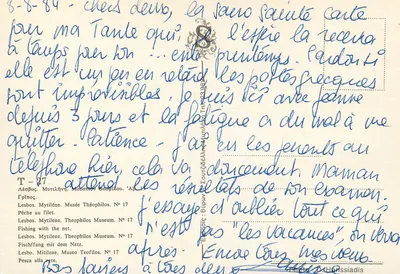 8-8-84 - chers deux, la sacro sainte carte
pour ma Tante qui, j'espère la recevra
à temps pour son ... ente printemps. Pardon si
elle est un peu en retard les postes grecques
sont imprévisibles. je suis ici avec Jeanne
depuis 3 jours et la fatigue a du mal à me
quitter. Patience - j'ai eu les parents au
téléphone hier, cela va doucement. Maman
attend les résultats de son examen.
J'essaye d'oublier tout ce qui
n'est pas "les vacances", on verra
après.
Bons baisers à tous deux
T - 17
Γρίπος.
Lesbos. Mytilène. Musée Théophilos. N° 17
Pêche au filet.
Lesbos. Mytilini. Theophilos Museum. N° 17
Fishing with the net.
Lesbos. Mytilini. Theophilos Museum. N° 17
Fischfang mit dem Netz.
Lesbo. Mitilini. Museo Teofilos. N° 17
Pesca alla rete.